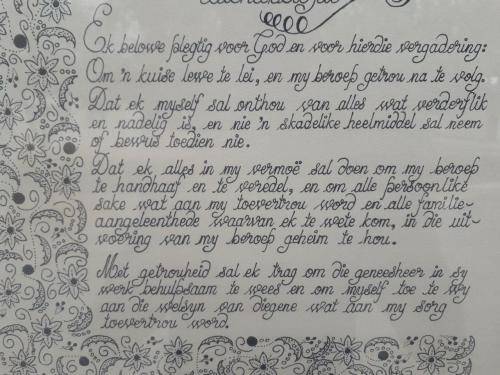 Ek belowe plegtig voor God en voor hierdie vergadering:
Om 'n kuise lewe te lei, en my beroep getrou na te volg.
Dat ek myself sal onthou van alles wat verderflik
en nadelig is, en nie 'n skadelike heelmiddel sal neem
of bewus toedien nie.
Dat ek alles in my vermoë sal doen om my beroep
te handhaaf en te veredel, en om alle persoonlike
sake wat aan my toevertrou word en alle familie-
aangeleenthede waarvan ek te wete kom, in die uit-
voering van my beroep geheim te hou.
Met getrouheid sal ek trag om die geneesheer in sy
werk behulpsaam te wees en om myself toe te wy
aan die welsyn van diegene wat aan my sorg
toevertrou word.